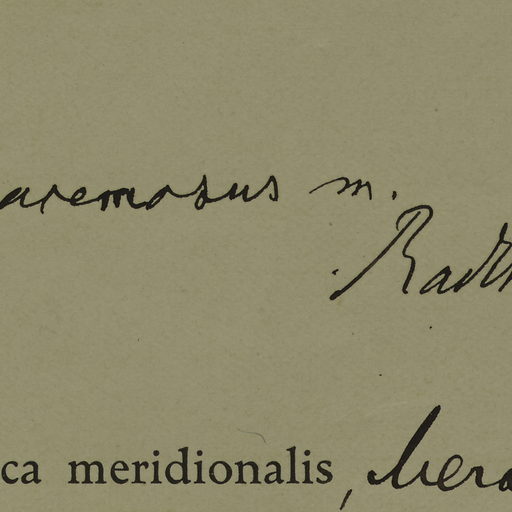 racemosus m.
Radlk
ca meridionalis, Mera